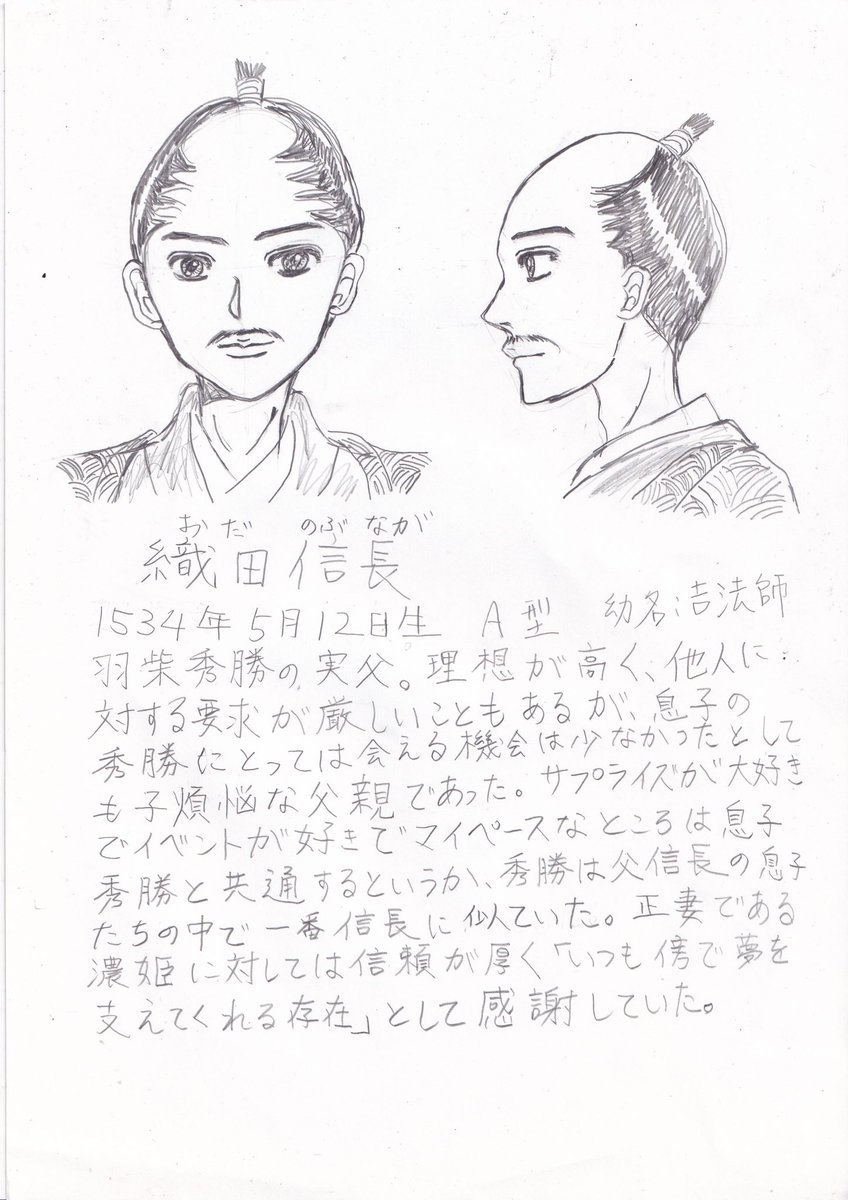 おだ のぶなが
織田信長
1534年5月12日生 A型 幼名:吉法師
羽柴秀勝の実父。理想が高く、他人に
対する要求が厳しいこともあるが、息子の
秀勝にとっては会える機会は少なかったとして
も子煩悩な父親であった。サプライズが大好き
でイベントが好きでマイペースなところは息子
秀勝と共通するというか、秀勝は父信長の息子
たちの中で一番信長に似ていた。正妻である
濃姫に対しては信頼が厚く「いつも傍で夢を
支えてくれる存在」として感謝していた。